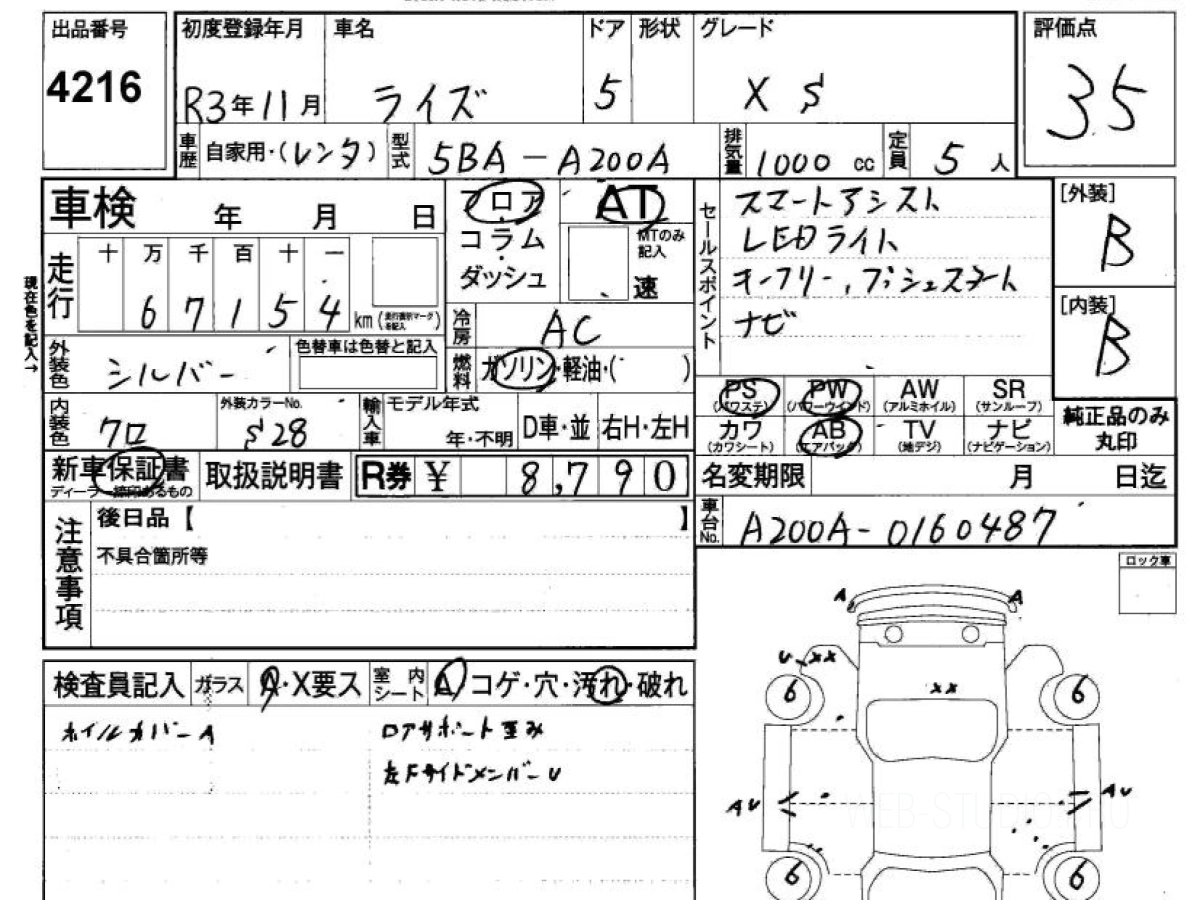 出品番号 4216
初度登録年月 R3年11月
車名 ライズ
ドア 5
形状
グレード X S
評価点 3.5
車歴 自家用・(レンタ)
型式 5BA-A200A
排気量 1000 cc
定員 5 人
車検 年 月 日
フロア・コラム・ダッシュ
AT
MTのみ記入 速
セールスポイント
スマートアシスト
LEDライト
キーフリー,プッシュスタート
ナビ
[外装] B
[内装] B
現在色を記入→
走行 十 万 千 百 十 一
6 7 1 5 4 km (走行距離マークを記入)
冷房 AC
燃料 ガソリン・軽油・( )
外装色 シルバー
色替車は色替と記入
PS (パワステ) PW (パワーウインド) AW (アルミホイル) SR (サンルーフ)
カワ (カワシート) AB (エアバッグ) TV (地デジ) ナビ (ナビゲーション)
純正品のみ丸印
内装色 クロ
外装カラーNo. S28
輸入車 モデル年式 年・不明 D車・並 右H・左H
新車保証書 ディーラー捺印あるもの
取扱説明書
R券 ¥ 8,790
名変期限 月 日迄
車台No. A200A-0160487
注意事項
後日品【 】
不具合箇所等
ロック車
検査員記入 ガラス A・X要ス 室内シート A コゲ・穴・汚れ・破れ
ホイルカバーA
ロアサポート歪み
左FサイドメンバーU
A A
U XX
XX
6 6
AU AU
WEB-STUDIO
6 6